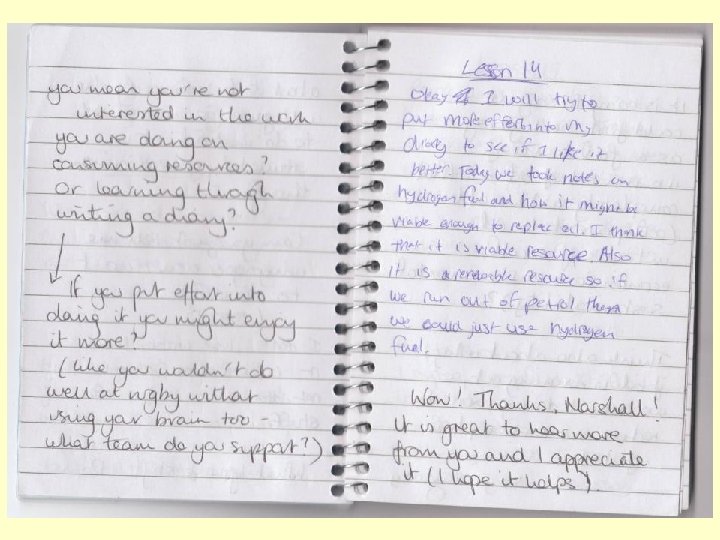 you mean you're not
interested in the work
you are doing on
consuming resources?
Or learning through
writing a diary?
If you put effort into
doing it you might enjoy
it more?
(like you wouldn't do
well at rugby without
using your brain too -
what team do you support?)
Lesson 14
Okay I will try to
put more effert into my
diary to see if I like it
better. Today we took notes on
hydrogen fuel and how it might be
viable enough to replace oil. I think
that it is viable resource. Also
it is a renewable resource so if
we run out of petrol then
we could just use hydrogen
fuel.
Wow! Thanks, Marshall!
It is great to hear more
from you and I appreciate
it (I hope it helps).